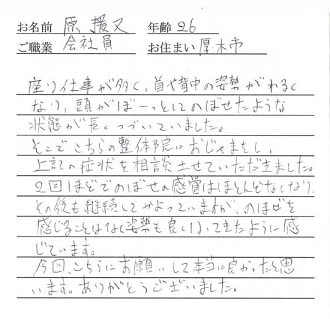 お名前 原 援又 年齢 26
ご職業 会社員 お住まい 厚木市
座り仕事が多く、首や背中の姿勢がわるく
なり、頭がぼーっとしてのぼせたような
状態が長くつづいていました。
そこでこちらの整体院におじゃまをし、
上記の症状を相談させていただきました。
2回ほどでのぼせの感覚はほとんどなくなり、
その後も継続してかよっていますが、のぼせを
感じることはなく姿勢も良くなってきたように感
じています。
今回、こちらにお願いして本当に良かったと思
います。ありがとうございました。